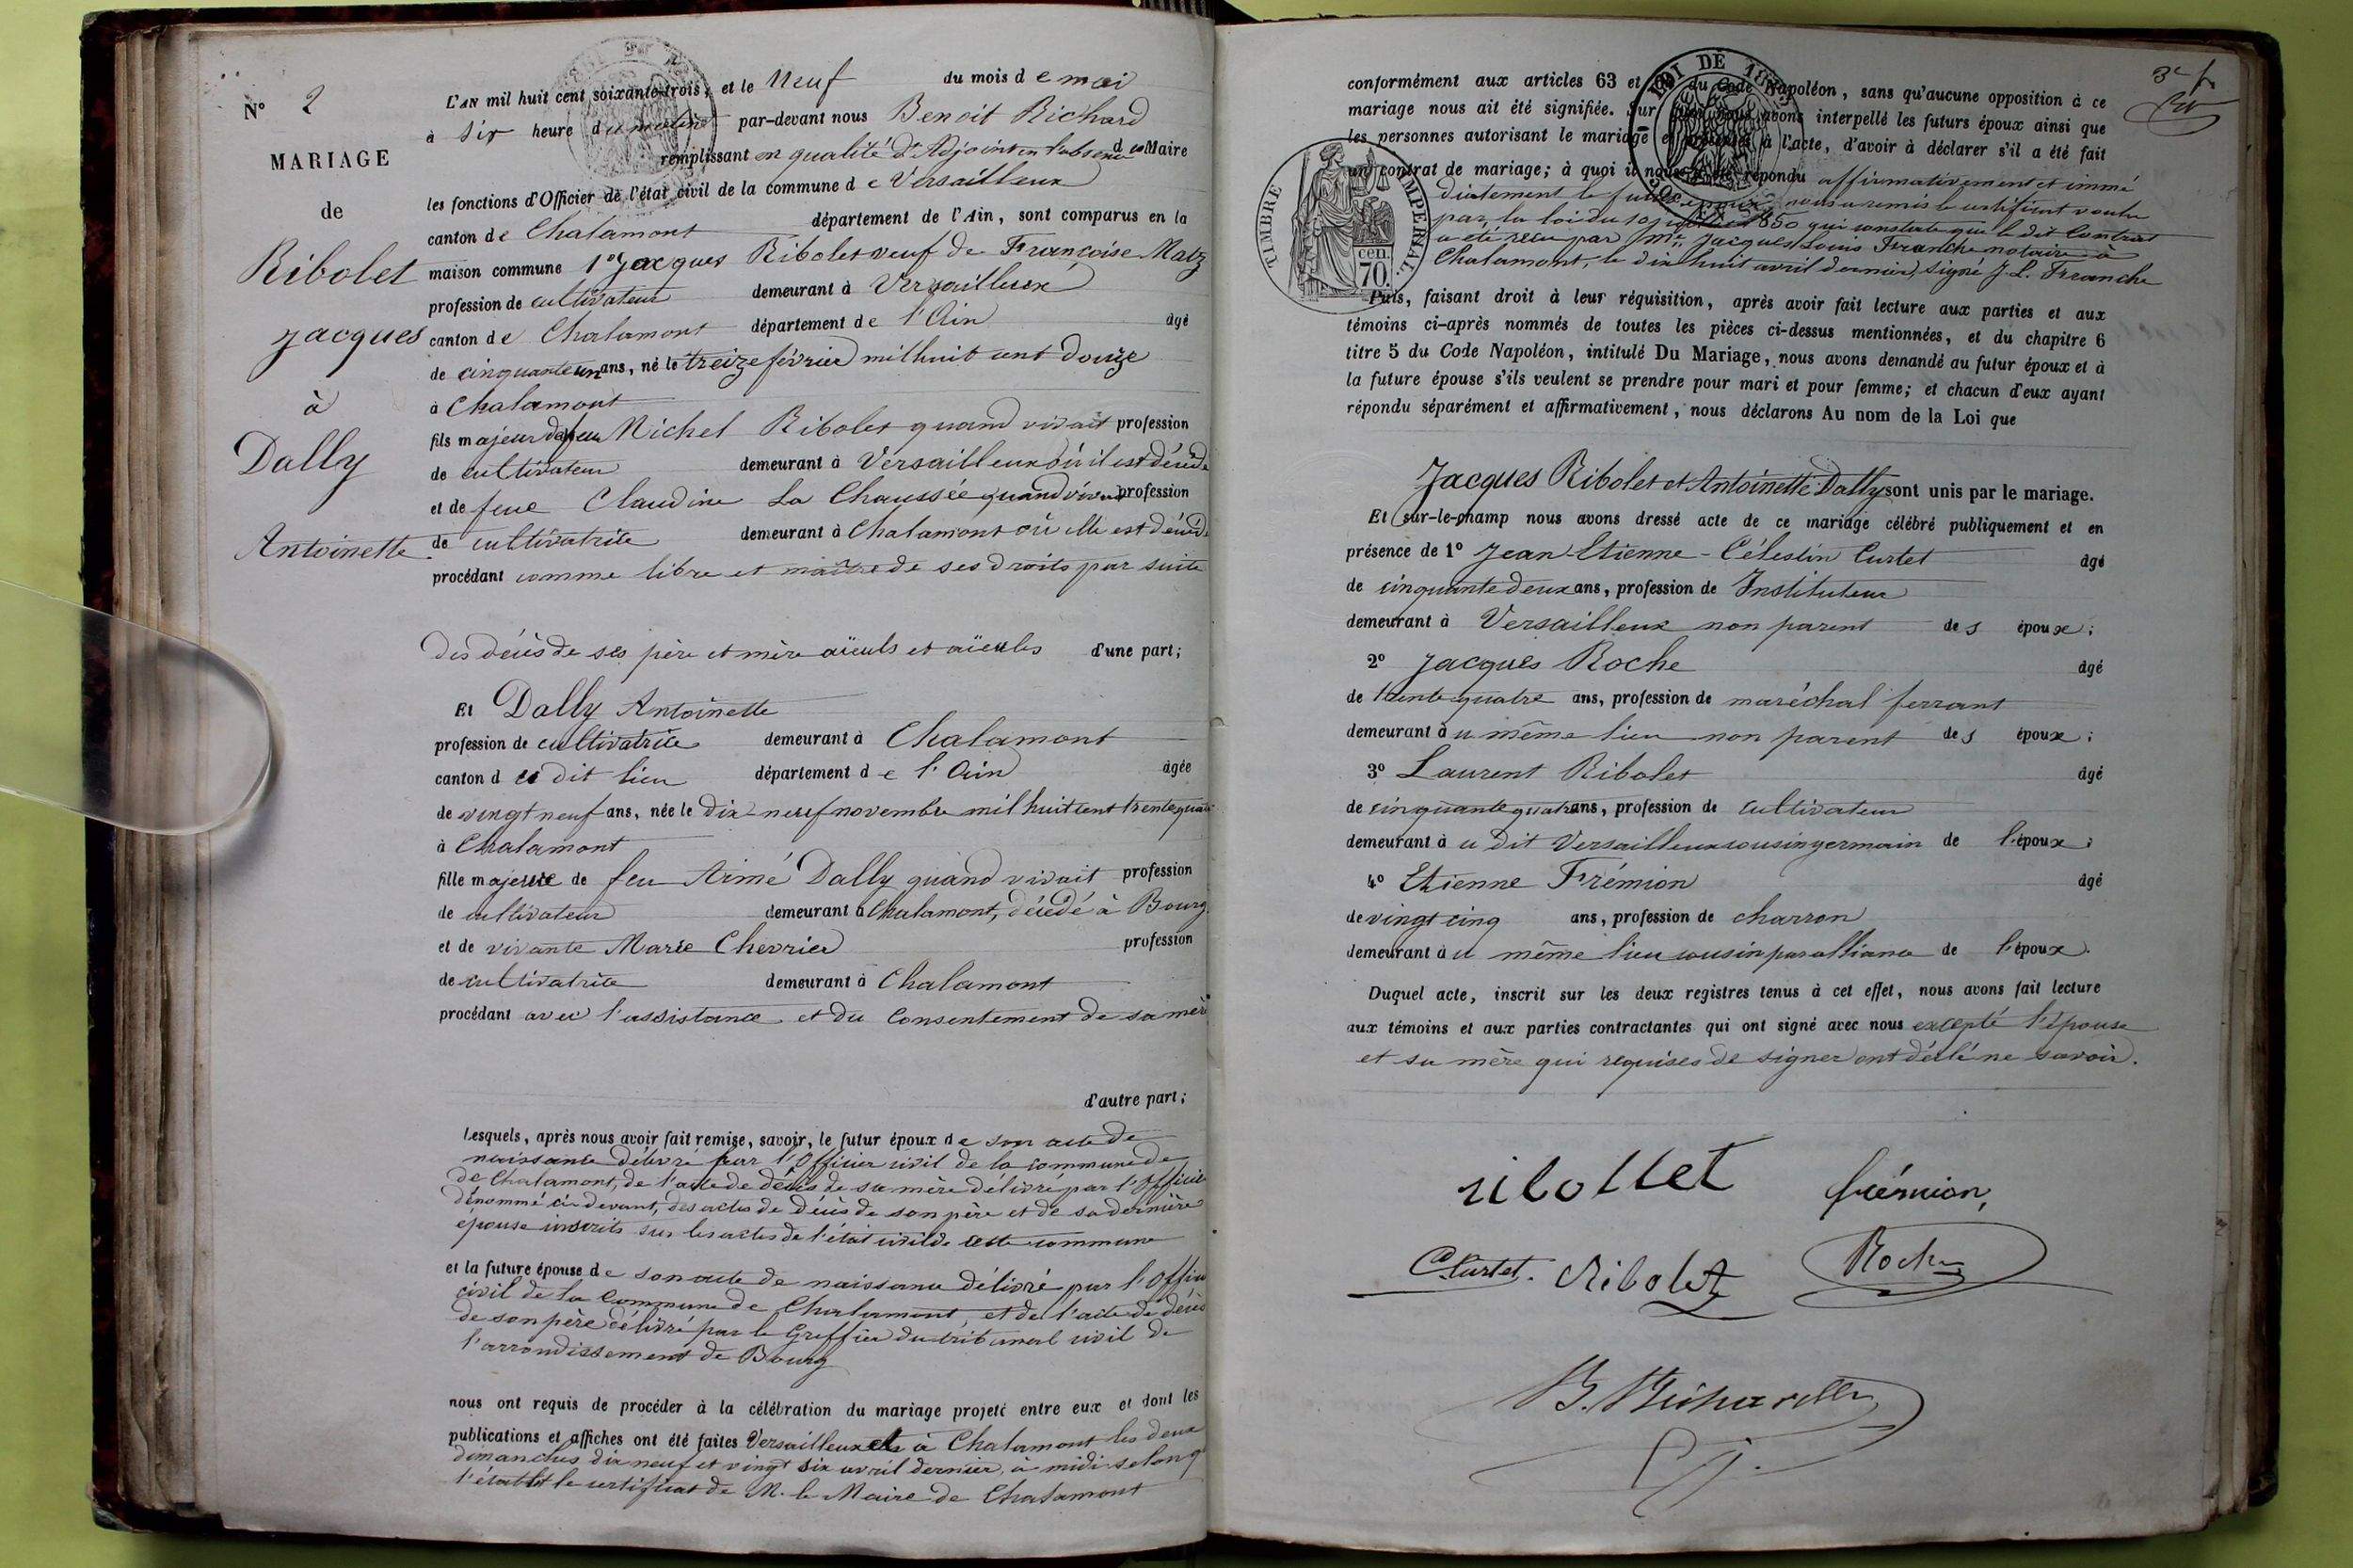 N° 2
MARIAGE
de
Ribolet
Jacques
à
Dally
Antoinette
L'AN mil huit cent soixante-trois, et le Neuf du mois de mai
à Six heure du matin par-devant nous Benoit Richard
remplissant en qualité d'Adjoint en l'absence du Maire
les fonctions d'Officier de l'état civil de la commune de Versailleux
canton de Chalamont département de l'Ain, sont comparus en la
maison commune 1° Jacques Ribolet veuf de Françoise
profession de cultivateur demeurant à Versailleux
canton de Chalamont département de l'Ain âgé
de cinquante un ans, né le treize février mil huit cent douze
à Chalamont
fils majeur de feu Michel Ribolet quand vivait profession
de cultivateur demeurant à Versailleux où il est décédé
et de feue Claudine La Chaussée quand vivait profession
de cultivatrice demeurant à Chalamont où elle est décédé
procédant comme libre et maître de ses droits par suite
des décès de ses père et mère aïeuls et aïeules d'une part;
Et Dally Antoinette
profession de cultivatrice demeurant à Chalamont
canton du dit lieu département de l'Ain âgée
de vingt neuf ans, née le dix-neuf novembre mil huit cent trente quatre
à Chalamont
fille majeure de feu Aimé Dally quand vivait profession
de cultivateur demeurant à Chalamont, décédé à Bourg
et de vivante Marie Chevrier profession
de cultivatrice demeurant à Chalamont
procédant avec l'assistance et du Consentement de sa mère
d'autre part;
Lesquels, après nous avoir fait remise, savoir, le futur époux de son acte de
naissance délivré par l'Officier civil de la commune de
de Chalamont, de l'acte de décès de sa mère délivré par l'Officier
dénommé ci-devant, des actes de décès de son père et de sa dernière
épouse inscrits sur les actes de l'état civil de cette commune
et la future épouse de son acte de naissance délivré par l'Officier
civil de la Commune de Chalamont, et de l'acte de décès
de son père délivré par le Greffier du tribunal civil de
l'arrondissement de Bourg
nous ont requis de procéder à la célébration du mariage projeté entre eux et dont les
publications et affiches ont été faites Versailleux et à Chalamont les deux
dimanches dix neuf et vingt six avril dernier, à midi selon q
l'établit le certificat de M. le Maire de Chalamont
3e f
conformément aux articles 63 et du Code Napoléon, sans qu'aucune opposition à ce
mariage nous ait été signifiée. Sur quoi nous avons interpellé les futurs époux ainsi que
les personnes autorisant le mariage et présentes à l'acte, d'avoir à déclarer s'il a été fait
un contrat de mariage; à quoi il nous a été répondu affirmativement et immé
diatement le futur époux nous a remis le certificat voulu
par la loi du 10 juillet 1850 qui constate que le dit Contrat
a été reçu par Me Jacques Louis Franche notaire à
Chalamont, le dix huit avril dernier, signé J. L. Franche
Puis, faisant droit à leur réquisition, après avoir fait lecture aux parties et aux
témoins ci-après nommés de toutes les pièces ci-dessus mentionnées, et du chapitre 6
titre 5 du Code Napoléon, intitulé Du Mariage, nous avons demandé au futur époux et à
la future épouse s'ils veulent se prendre pour mari et pour femme; et chacun d'eux ayant
répondu séparément et affirmativement, nous déclarons Au nom de la Loi que
Jacques Ribolet et Antoinette Dally sont unis par le mariage.
Et sur-le-champ nous avons dressé acte de ce mariage célébré publiquement et en
présence de 1° Jean-Etienne-Célestin Curtet âgé
de cinquante deux ans, profession de Instituteur
demeurant à Versailleux non parent des époux;
2° Jacques Roche âgé
de trente quatre ans, profession de maréchal ferrant
demeurant au même lieu non parent des époux;
3° Laurent Ribolet âgé
de cinquante quatre ans, profession de cultivateur
demeurant au dit Versailleux cousin germain de l'époux;
4° Etienne Frémion âgé
de vingt cinq ans, profession de charron
demeurant au même lieu cousin par alliance de l'époux.
Duquel acte, inscrit sur les deux registres tenus à cet effet, nous avons fait lecture
aux témoins et aux parties contractantes qui ont signé avec nous excepté l'épouse
et sa mère qui requises de signer ont déclé ne savoir.
ribollet frémion,
C. Curtet. Ribolet Roche
B. Richard
TIMBRE IMPERIAL.
70 cen.
LOI DE 18